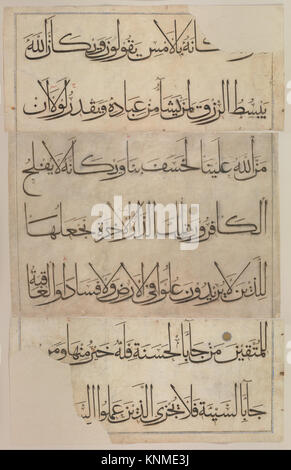 كانه بالامس يقولون ويكأن الله
يبسط الرزق لمن يشاء من عباده ويقدر لولا ان
من الله علينا لخسف بنا ويكانه لا يفلح
الكافرون تلك الدار الاخرة نجعلها
للذين لا يريدون علوا في الارض ولا فسادا والعاقبة
للمتقين من جا بالحسنة فله خير منها ومن
جا بالسيئة فلا يجزى الذين عملوا
KNME3J